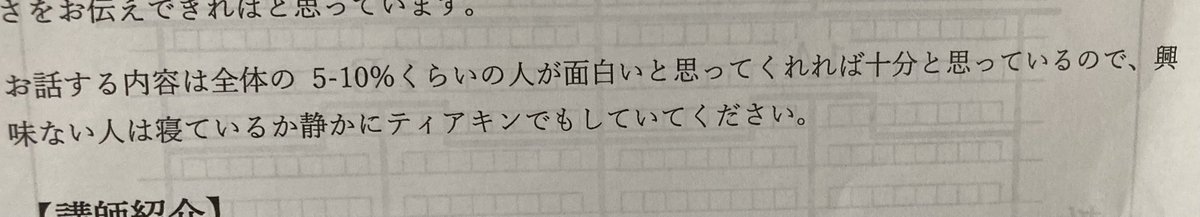 さをお伝えできればと思っています。
お話する内容は全体の 5-10%くらいの人が面白いと思ってくれれば十分と思っているので、興
味ない人は寝ているか静かにティアキンでもしていてください。
【講師紹介】